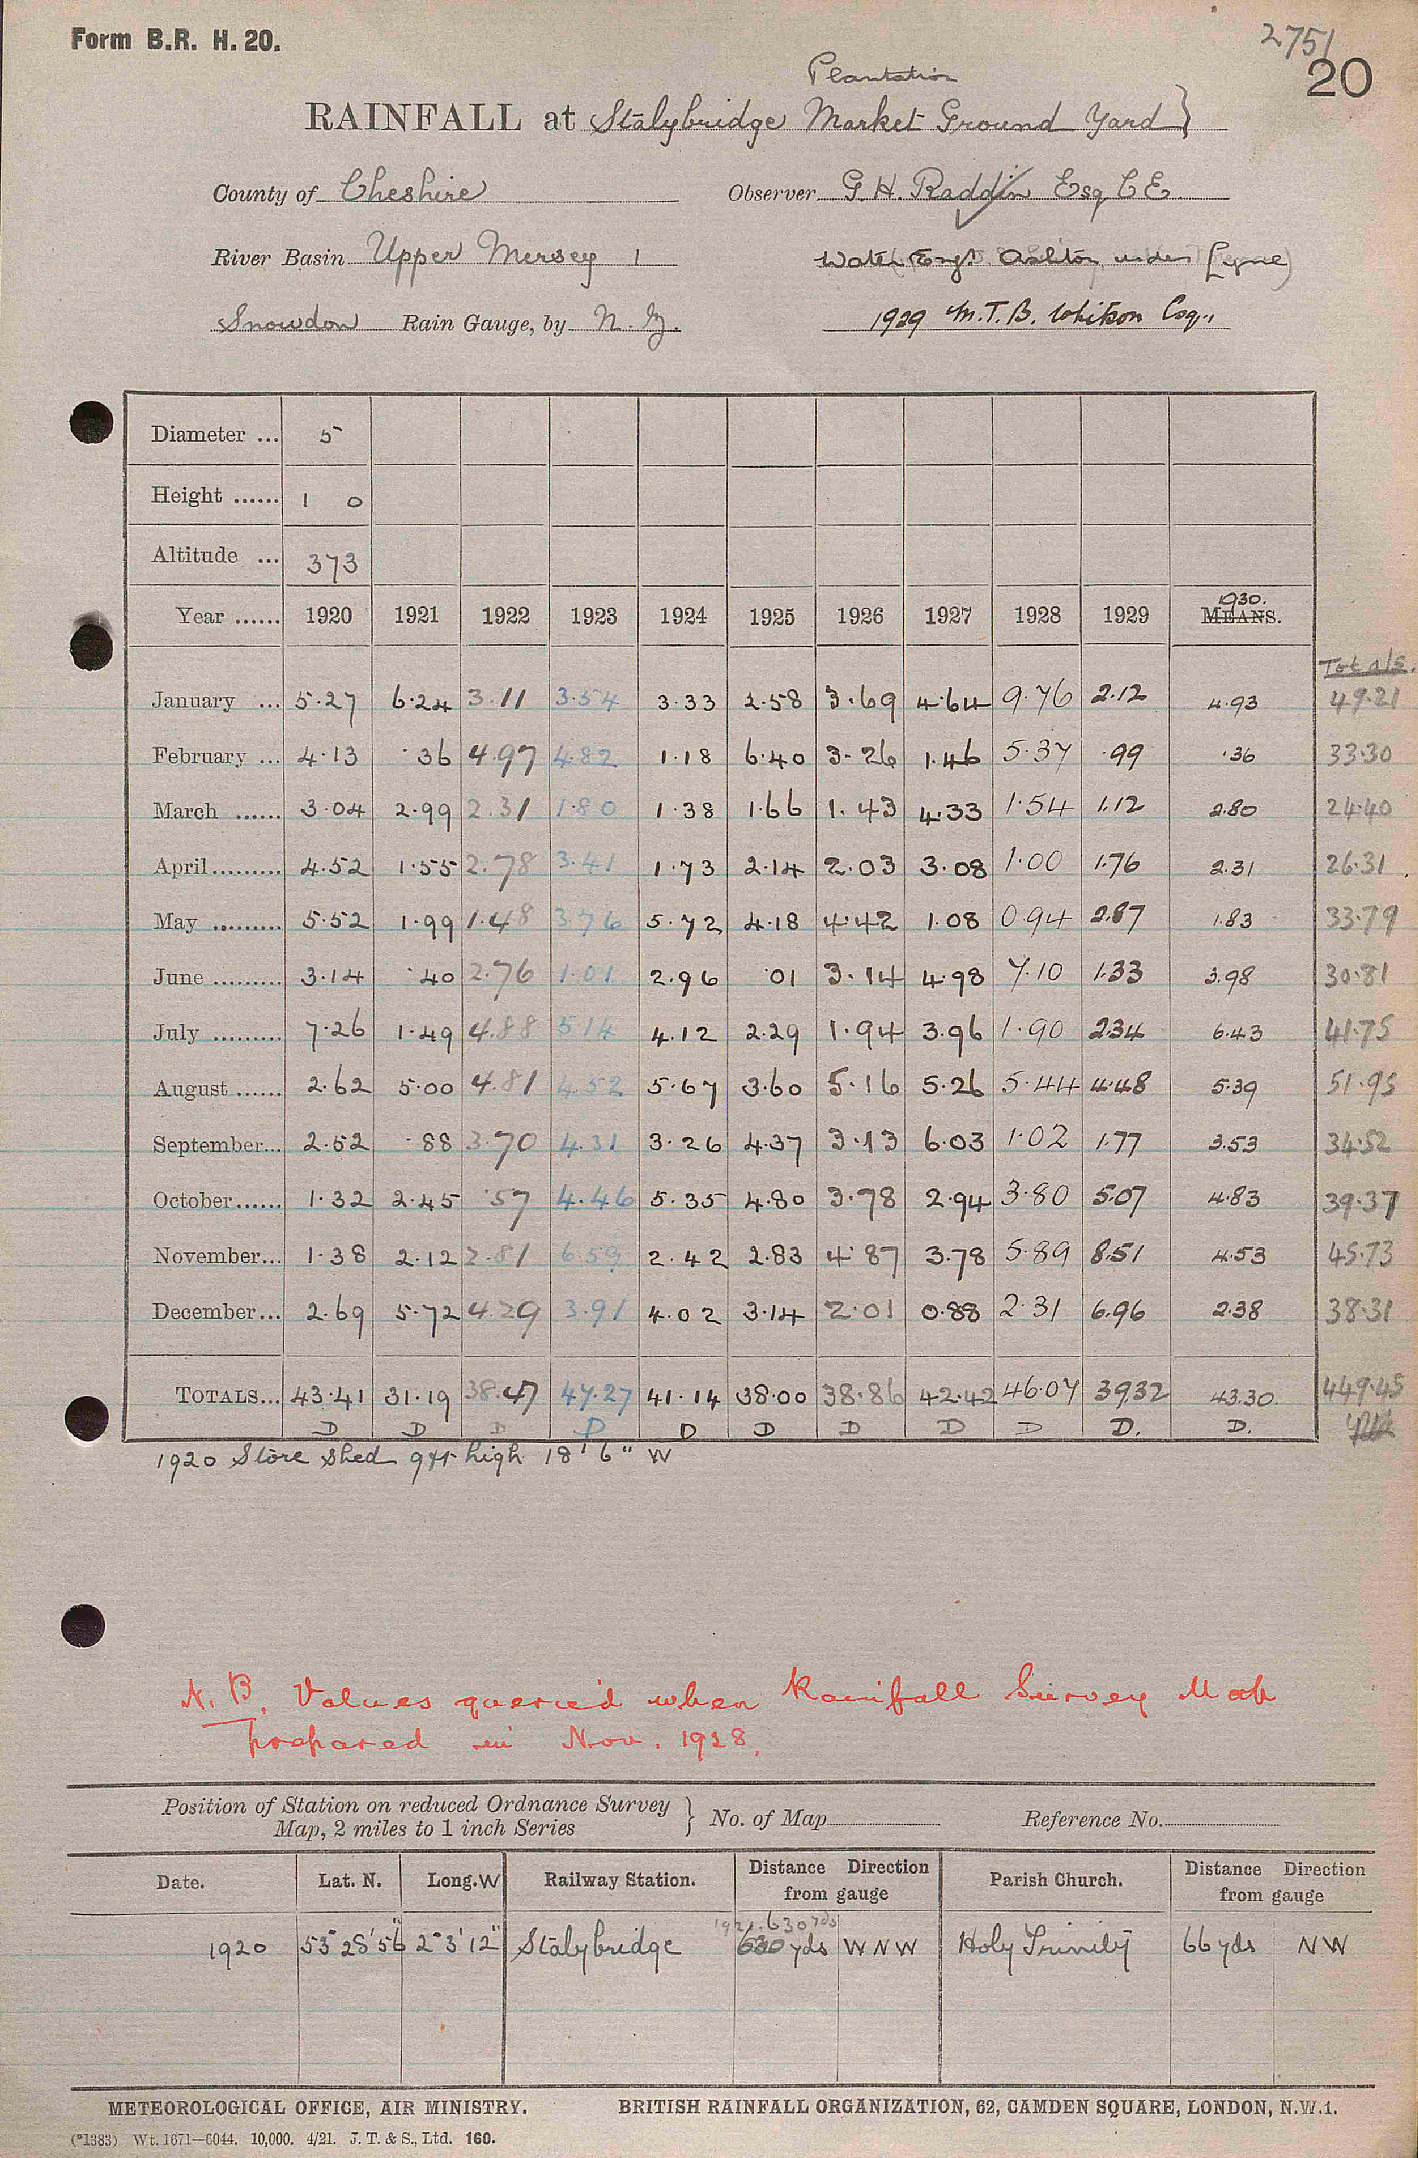 Form B.R. H. 20.
2751
20
Plantation
RAINFALL at Stalybridge Market Ground Yard }
County of Cheshire Observer G. H. Raddin Esq C E
River Basin Upper Mersey 1 Water Engr. Ashton under Lyne)
Snowdon Rain Gauge, by N. Z. 1929 M.T.B. Whitson Esq.,
Diameter ... 5
Height ...... 1 0
Altitude ... 373
1930.
Year ...... 1920 1921 1922 1923 1924 1925 1926 1927 1928 1929 MEANS.
Totals.
January ... 5.27 6.24 3.11 3.54 3.33 2.58 3.69 4.64 9.76 2.12 4.93 49.21
February ... 4.13 .36 4.97 4.82 1.18 6.40 3.26 1.46 5.37 .99 .36 33.30
March ...... 3.04 2.99 2.31 1.80 1.38 1.66 1.43 4.33 1.54 1.12 2.80 24.40
April ......... 4.52 1.55 2.78 3.41 1.73 2.14 2.03 3.08 1.00 1.76 2.31 26.31
May ......... 5.52 1.99 1.48 3.76 5.72 4.18 4.42 1.08 0.94 2.87 1.83 33.79
June ......... 3.14 .40 2.76 1.01 2.96 .01 3.14 4.98 7.10 1.33 3.98 30.81
July ......... 7.26 1.49 4.88 5.14 4.12 2.29 1.94 3.96 1.90 2.34 6.43 41.75
August ...... 2.62 5.00 4.81 4.52 5.67 3.60 5.16 5.26 5.44 4.48 5.39 51.95
September... 2.52 .88 3.70 4.31 3.26 4.37 3.13 6.03 1.02 1.77 3.53 34.52
October...... 1.32 2.45 .57 4.46 5.35 4.80 3.78 2.94 3.80 5.07 4.83 39.37
November... 1.38 2.12 2.81 6.59 2.42 2.83 4.87 3.78 5.89 8.51 4.53 45.73
December... 2.69 5.72 4.29 3.91 4.02 3.14 2.01 0.88 2.31 6.96 2.38 38.31
TOTALS... 43.41 31.19 38.47 47.27 41.14 38.00 38.86 42.42 46.07 39.32 43.30. 449.45
D D D D D D D D D D. D.
1920 Store shed 9ft high 18' 6" W
N.B. Values queried when Rainfall Survey Map
prepared in Nov. 1928.
Position of Station on reduced Ordnance Survey
Map, 2 miles to 1 inch Series } No. of Map Reference No.
Date. Lat. N. Long. W Railway Station. Distance Direction from gauge Parish Church. Distance Direction from gauge
1921. 630 yds
1920 53° 28' 56" 2° 3' 12" Stalybridge 630 yds W N W Holy Trinity 66 yds N W
METEOROLOGICAL OFFICE, AIR MINISTRY. BRITISH RAINFALL ORGANIZATION, 62, CAMDEN SQUARE, LONDON, N.W.1.
(*1383) Wt. 1671—6044. 10,000. 4/21. J. T. & S., Ltd. 160.